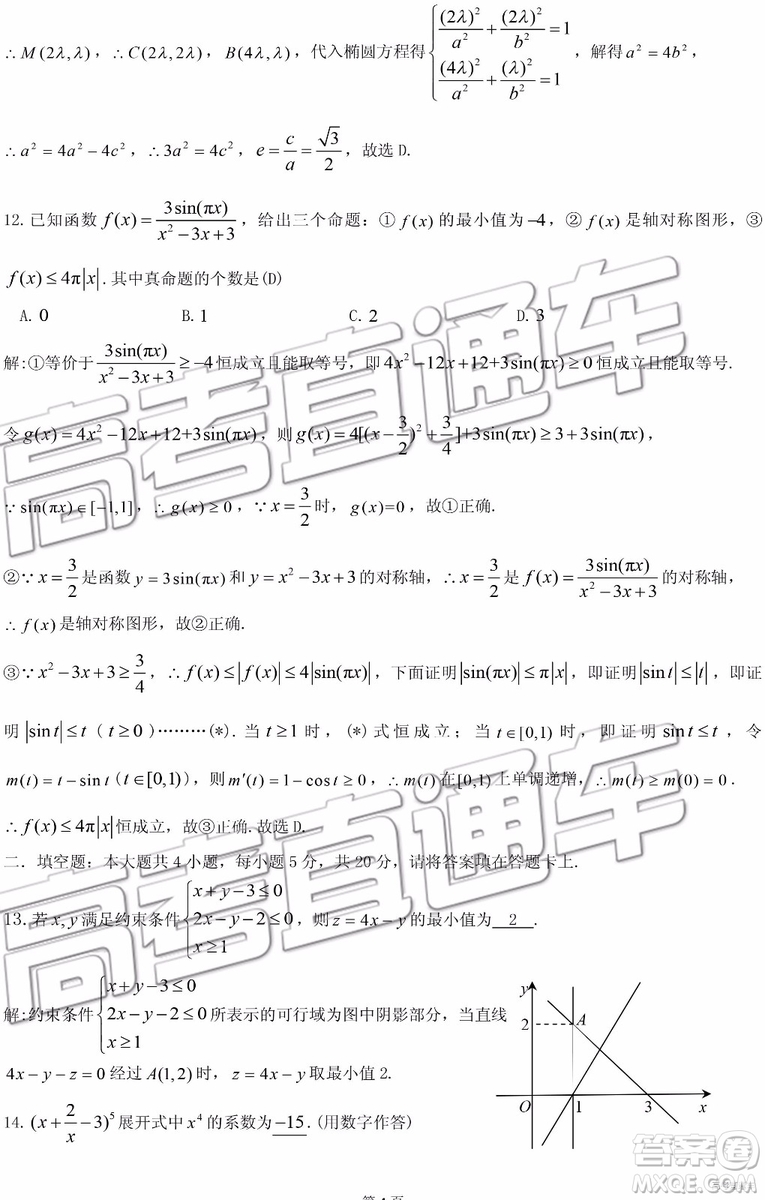 ∴M(2λ,λ)，∴C(2λ,2λ)，B(4λ,λ)，代入椭圆方程得{(2λ)²/a²+(2λ)²/b²=1, (4λ)²/a²+(λ)²/b²=1，解得a²=4b²，
∴a²=4a²−4c²，∴3a²=4c²，e=c/a=√3/2，故选 D.
12. 已知函数f(x)=3sin(πx)/(x²−3x+3)，给出三个命题：① f(x)的最小值为−4，② f(x)是轴对称图形，③
f(x)≤4π|x|.其中真命题的个数是(D)
A. 0 B. 1 C. 2 D. 3
解:①等价于3sin(πx)/(x²−3x+3)≥−4恒成立且能取等号，即4x²−12x+12+3sin(πx)≥0恒成立且能取等号.
令g(x)=4x²−12x+12+3sin(πx)，则g(x)=4[(x−3/2)²+3/4]+3sin(πx)≥3+3sin(πx)，
∵sin(πx)∈[−1,1]，∴g(x)≥0，∵x=3/2时，g(x)=0，故①正确.
②∵x=3/2是函数y=3sin(πx)和y=x²−3x+3的对称轴，∴x=3/2是f(x)=3sin(πx)/(x²−3x+3)的对称轴，
∴f(x)是轴对称图形，故②正确.
③∵x²−3x+3≥3/4，∴f(x)≤|f(x)|≤4|sin(πx)|，下面证明|sin(πx)|≤π|x|，即证明|sin t|≤|t|，即证
明|sin t|≤t（t≥0）………(*).当t≥1时，(*)式恒成立；当t∈[0,1)时，即证明sin t≤t，令
m(t)=t−sin t（t∈[0,1)），则m′(t)=1−cos t≥0，∴m(t)在[0,1)上单调递增，∴m(t)≥m(0)=0.
∴f(x)≤4π|x|恒成立，故③正确.故选 D.
二．填空题：本大题共 4 小题，每小题 5 分，共 20 分，请将答案填在答题卡上.
13.若x,y满足约束条件{x+y−3≤0, 2x−y−2≤0, x≥1，则z=4x−y的最小值为 2 .
解:约束条件{x+y−3≤0, 2x−y−2≤0, x≥1所表示的可行域为图中阴影部分，当直线
4x−y−z=0经过A(1,2)时，z=4x−y取最小值 2.
y
2
A
O
1
3
x
14. (x+2/x−3)⁵展开式中x⁴的系数为−15.(用数字作答)
高考直通车
高考直通车
答案圈
MXQE.COM